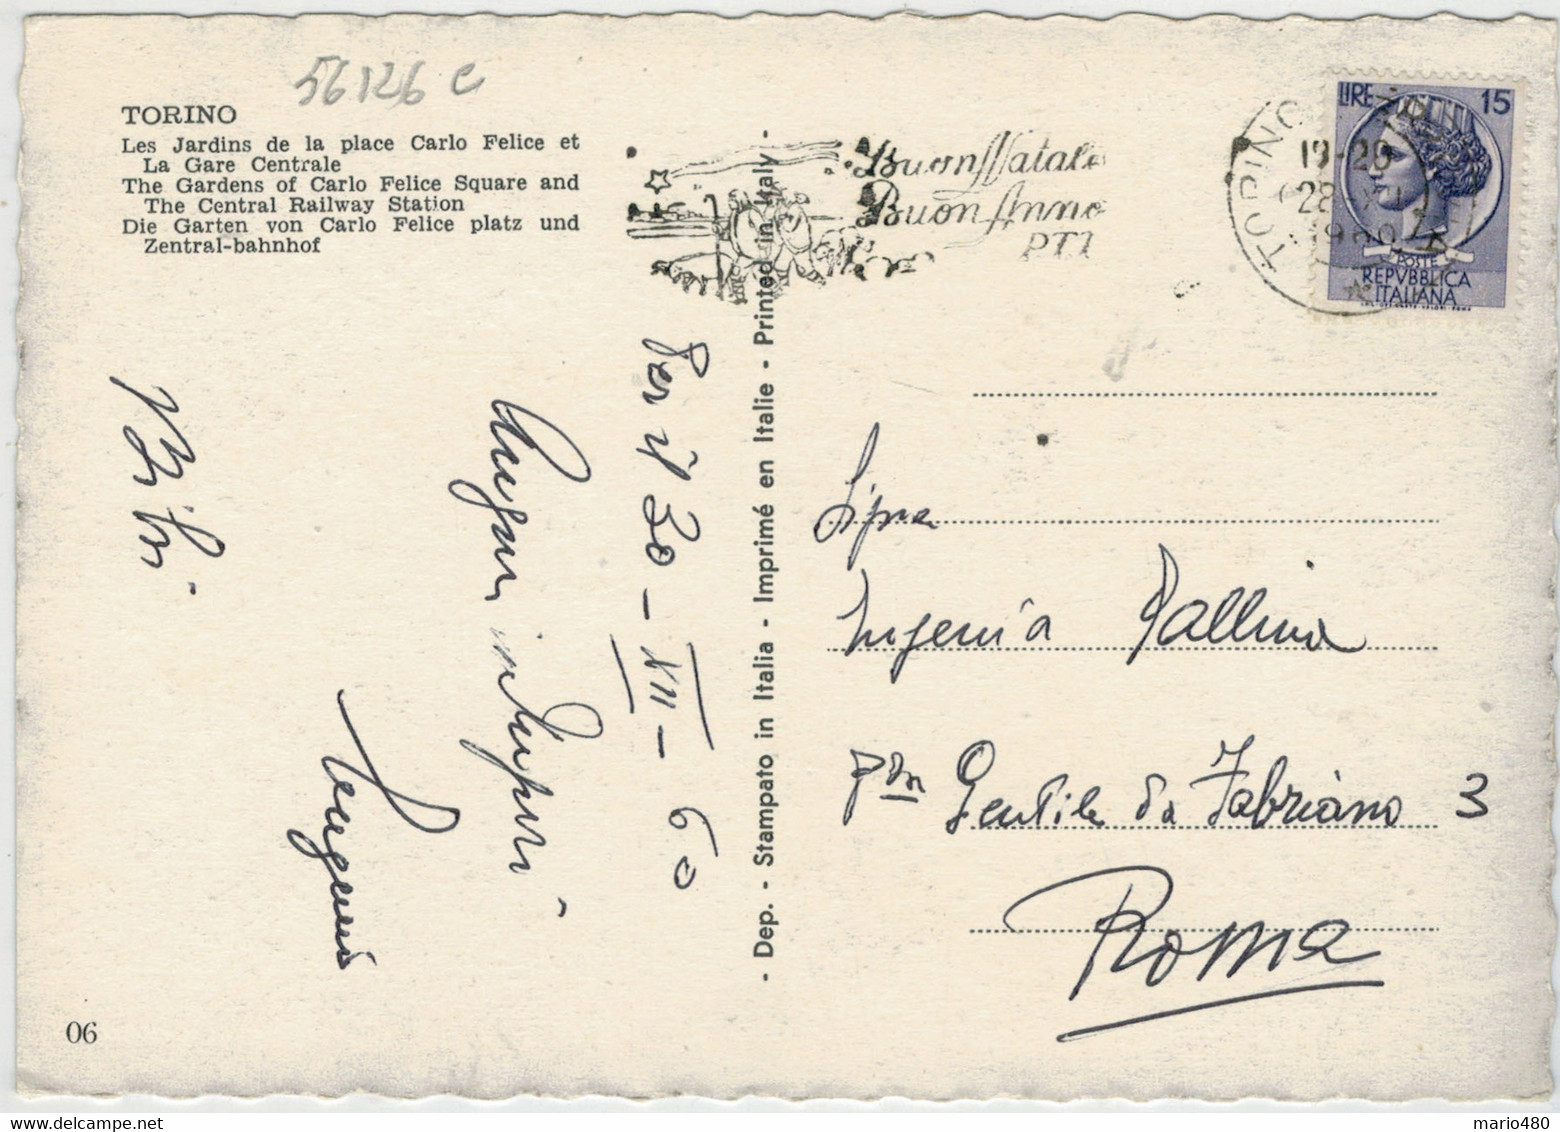 56126 C
TORINO
Les Jardins de la place Carlo Felice et
La Gare Centrale
The Gardens of Carlo Felice Square and
The Central Railway Station
Die Garten von Carlo Felice platz und
Zentral-bahnhof
Buon Natale
Buon Anno
PTT
TORINO
19-20
28 XII
1960
LIRE 15
POSTE
REPVBBLICA
ITALIANA
Per il 30-XII-60
Auguri
- Dep. - Stampato in Italia - Imprimé en Italie - Printed in Italy -
Sig.na
Eugenia Pallina
Gentile da Fabriano 3
Roma
06
mario480